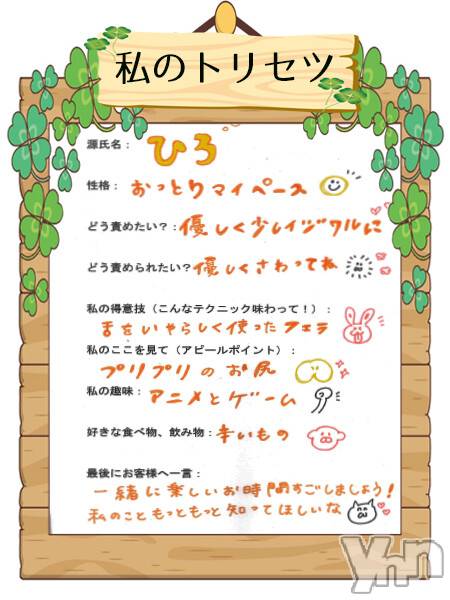 私のトリセツ
源氏名： ひろ
性格： おっとりマイペース
どう責めたい？：優しく少しイジワルに
どう責められたい？優しくさわってね
私の得意技（こんなテクニック味わって！）：
舌をいやらしく使ったフェラ
私のここを見て（アピールポイント）：
プリプリのお尻
私の趣味：アニメとゲーム
好きな食べ物、飲み物：辛いもの
最後にお客様へ一言：
一緒に楽しいお時間すごしましょう！
私のこともっともっと知ってほしいな